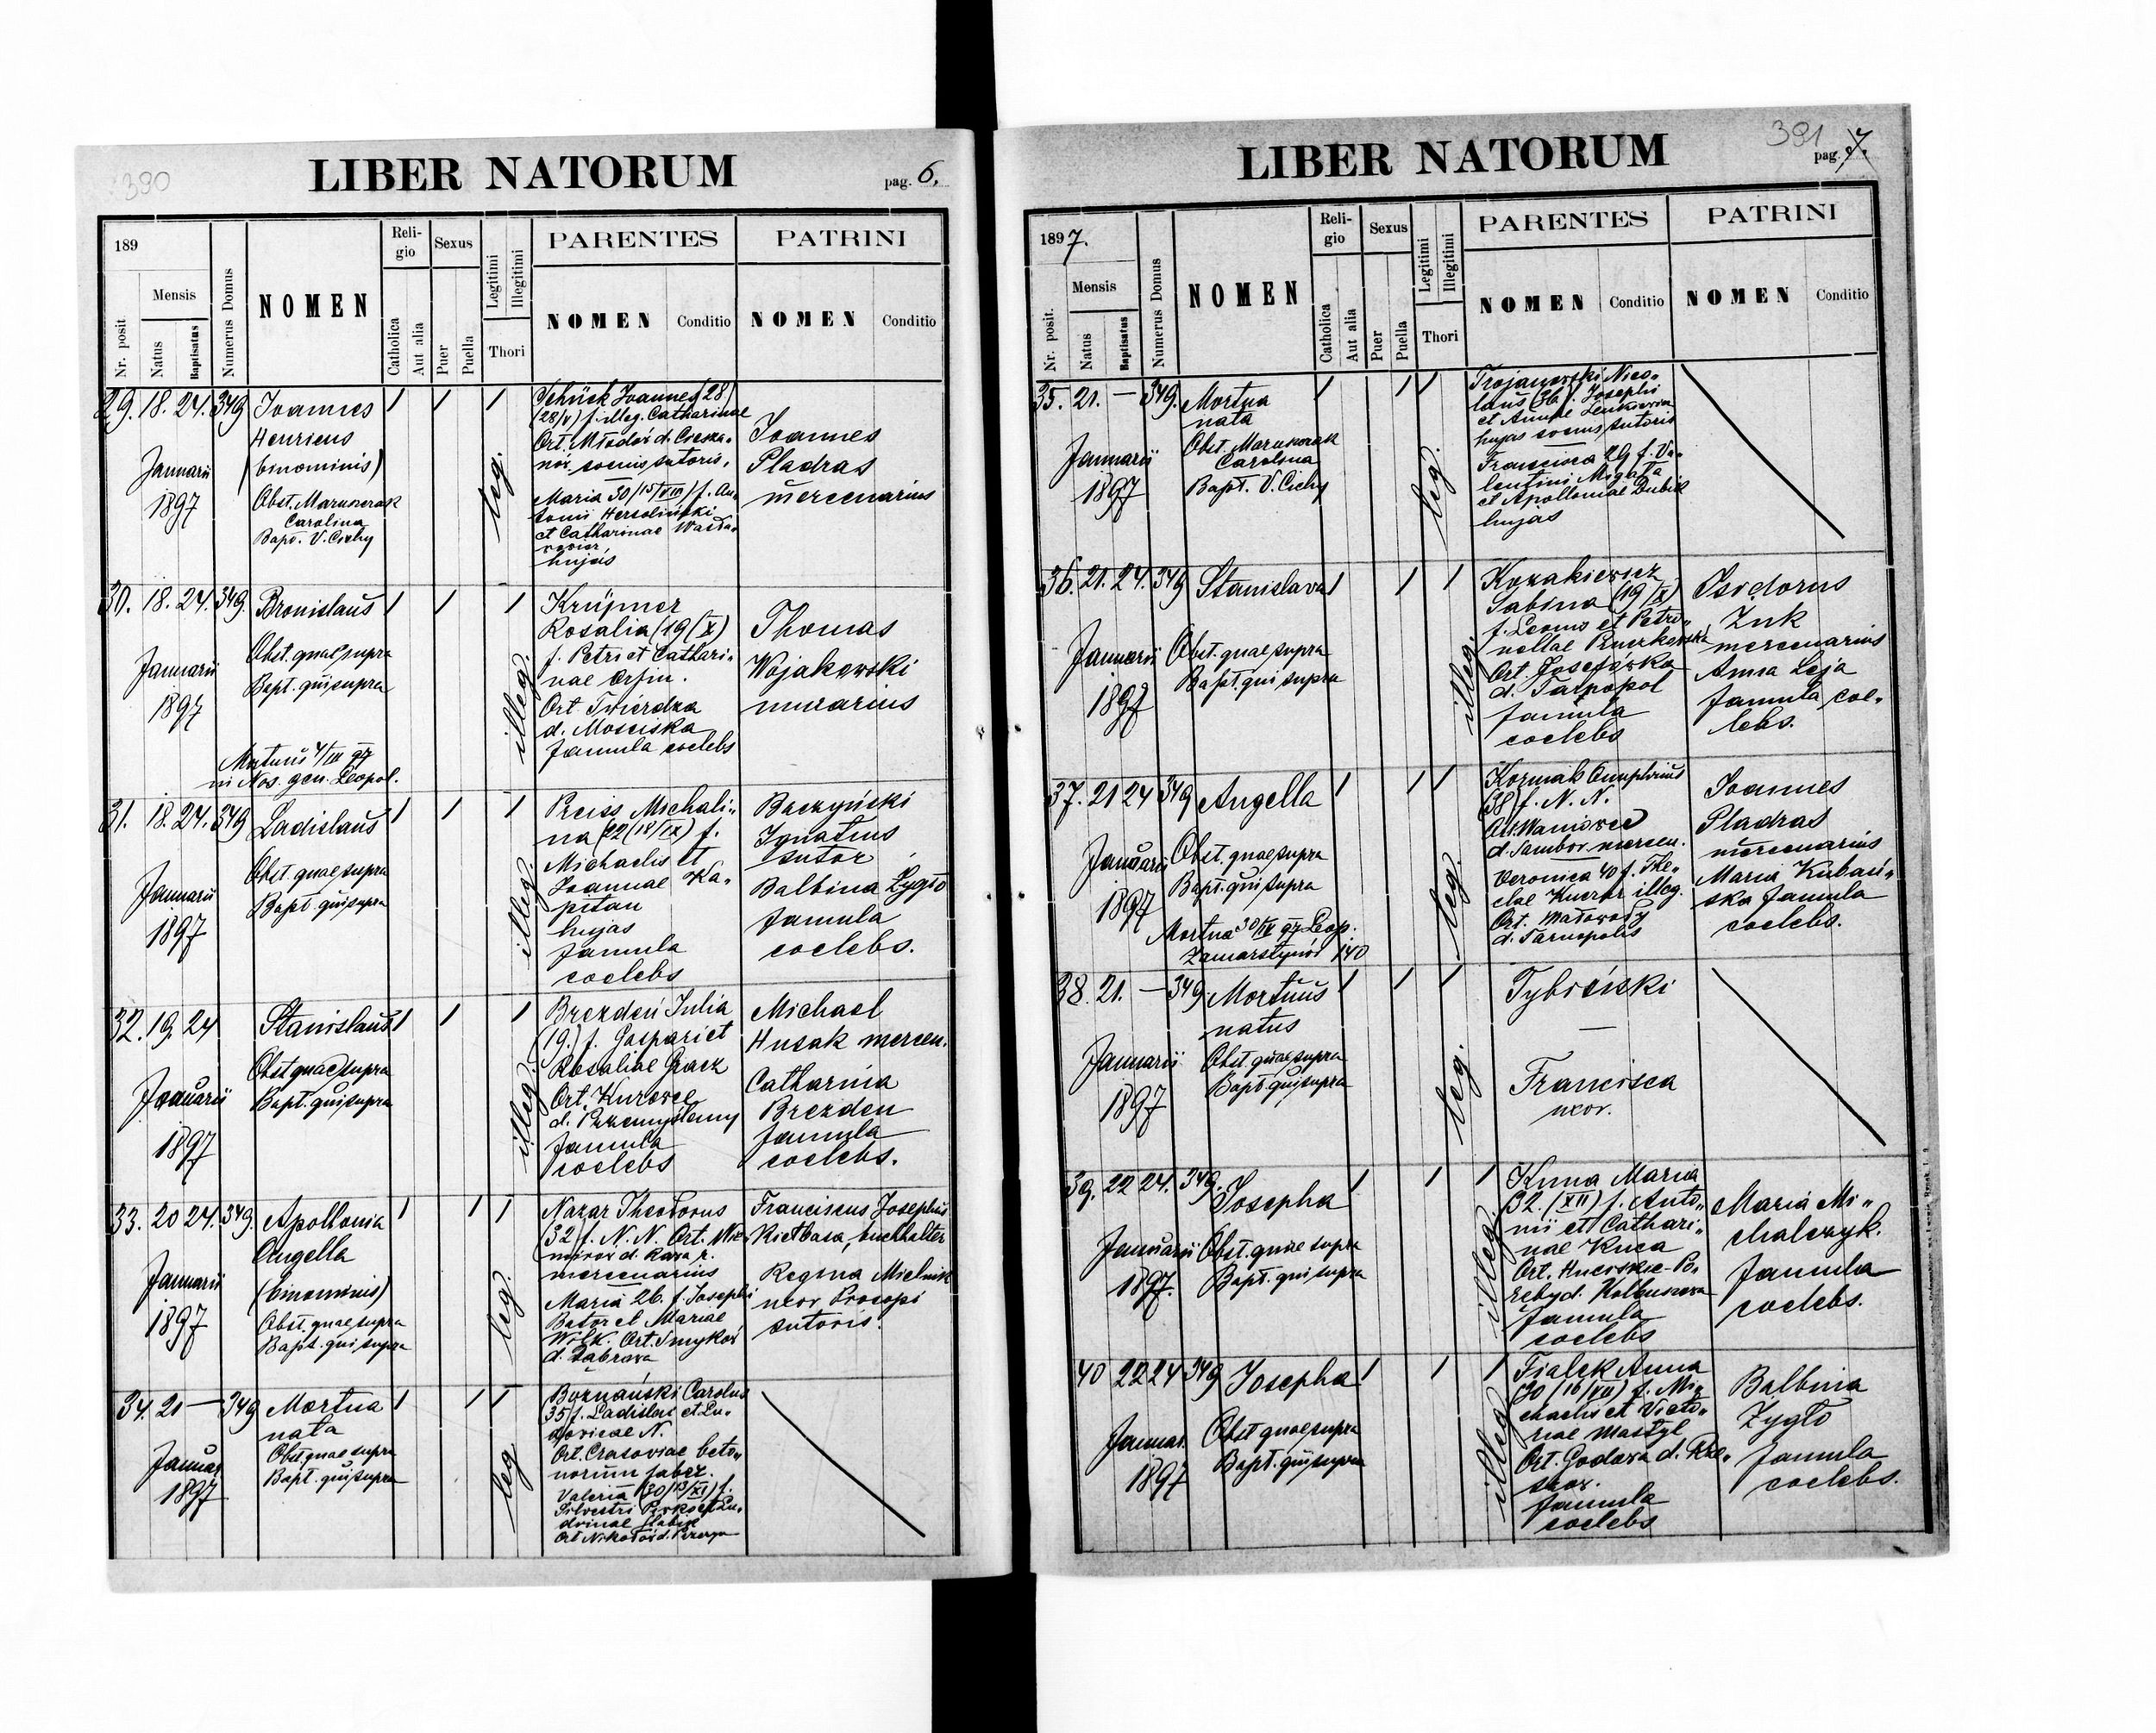 390
LIBER NATORUM
pag. 6.
189
Mensis
Nr. posit
Natus
Baptisatus
Numerus Domus
NOMEN
Reli-
gio
Catholica
Aut alia
Sexus
Puer
Puella
Legitimi
Illegitimi
Thori
PARENTES
NOMEN
Conditio
PATRINI
NOMEN
Conditio
29. 18. 24. 349
Januarii
1897
Joannes
Henricus
(binominis)
Obst. Marunorak
Carolina
Bapt. V. Cichy
leg.
Schück Joannes (28)
(28/V) f. illeg. Catharinae
Ort. Młodów d. Ciesza-
nów socius sutoris,
Maria 30 (15/VIII) f. An-
tonii
et Catharinae
hujas
Joannes
Pladras
mercenarius
30. 18. 24. 349
Januarii
1897
Bronislaus
Obst. quae supra
Bapt. qui supra
Mortuus 4/III 97
in Nos. gen. Leopol.
illeg.
Krüpner
Rosalia (19 (X)
f. Petri et Cathari-
nae
Ort Twierdza
d. Mosciska
famula coelebs
Thomas
Wojakowski
murarius
31. 18. 24. 349
Januarii
1897
Ladislaus
Obst. quae supra
Bapt. qui supra
illeg.
Preiss Michali-
na (22 (18/IX) f.
Michaelis et
Joannae Ka-
pitan
hujas
famula
coelebs
Baczyński
Ignatius
sutor
Balbina Zygło
famula
coelebs.
32. 19. 24
Januarii
1897
Stanislaus
Obst quae supra
Bapt. qui supra
illeg.
Brezdeń Julia
(19.) f. Gaspari et
Rosaliae Gracz
Ort. Kurowce
d. Przemyślany
famula
coelebs
Michael
Husak mercen.
Catharina
Brezden
famula
coelebs.
33. 20 24. 349.
Januarii
1897
Apollonia
Angella
(binominis)
Obst. quae supra
Bapt. qui supra
leg.
Nazar Theodorus
(32 f. N. N. Ort. Nie-
mirów d. Rawa r.
mercenarius
Maria 26. f. Josephi
Bator et Mariae
Wilk. Ort. Smyków
d. Dąbrowa
Franciscus Josephus
Kiełbasa, buchhalter
Regina Mielnik
uxor Procopi
sutoris.
34. 21 — 349
Januar.
1897
Mortua
nata
Obst quae supra
Bapt. qui supra
leg
Boznański Carolus
35 f. Ladislai et Lu-
dovicae N.
Ort. Cracoviae beto-
norum faber.
Valeria (30 (13/XI) f.
Silvestri et Lu-
dvinae
Ort
391
LIBER NATORUM
pag. 7.
1897.
Mensis
Nr. posit.
Natus
Baptisatus
Numerus Domus
NOMEN
Reli-
gio
Catholica
Aut alia
Sexus
Puer
Puella
Legitimi
Illegitimi
Thori
PARENTES
NOMEN
Conditio
PATRINI
NOMEN
Conditio
35. 21. — 349.
Januarii
1897
Mortua
nata
Obst. Marunorak
Carolina
Bapt. V. Cichy
leg.
Trojanowski Nico-
laus (36) f. Josephi
et Annae Zenkiewicz
hujas socius sutoris
Francisca 29 f. Va-
lentini Migała
et Apolloniae Dubik
hujas
36. 21. 24. 349
Januarii
1897
Stanislava
Obst. quae supra
Bapt. qui supra
illeg.
Kozakiewicz
Sabina (19 (X)
f. Leonis et Petro-
nellae
Ort. Josefówka
d. Tarnopol
famula
coelebs
Isidorus
Zuk
mercenarius
Anna Leja
famula coe-
lebs.
37. 21 24 349
Januarii
1897
Angella
Obst. quae supra
Bapt. qui supra
Mortua 30/IV 97 Leop.
Zamarstynów 140
leg.
Kozmak Onuphrius
(38) f. N. N.
Ort. Waniowce
d. Sambor mercen.
Veronica 40 f. The-
clae illeg.
Ort.
d. Tarnopolis
Joannes
Pladras
mercenarius
Maria Kubań-
ska famula
coelebs.
38. 21. — 349.
Januarii
1897
Mortuus
natus
Obst quae supra
Bapt. qui supra
leg.
Tybiński
—
Francisca
uxor.
39. 22 24. 349.
Januarii
1897.
Josepha
Obst. quae supra
Bapt. qui supra
illeg.
Kuna Maria
(32. (XII) f. Anto-
nii et Cathari-
nae Kuca
Ort. Hucisko Po-
ręby d. Kolbuszowa
famula
coelebs
Maria Mi-
chalczyk.
famula
coelebs.
40 22 24 349
Januar.
1897
Josepha
Obst quae supra
Bapt. qui supra
illeg
Fialek Anna
(30 (16/VII) f. Mi-
chaelis et Victo-
riae Mastyl
Ort. Godowa d. Rze-
szow.
famula
coelebs
Balbina
Zygło
famula
coelebs.